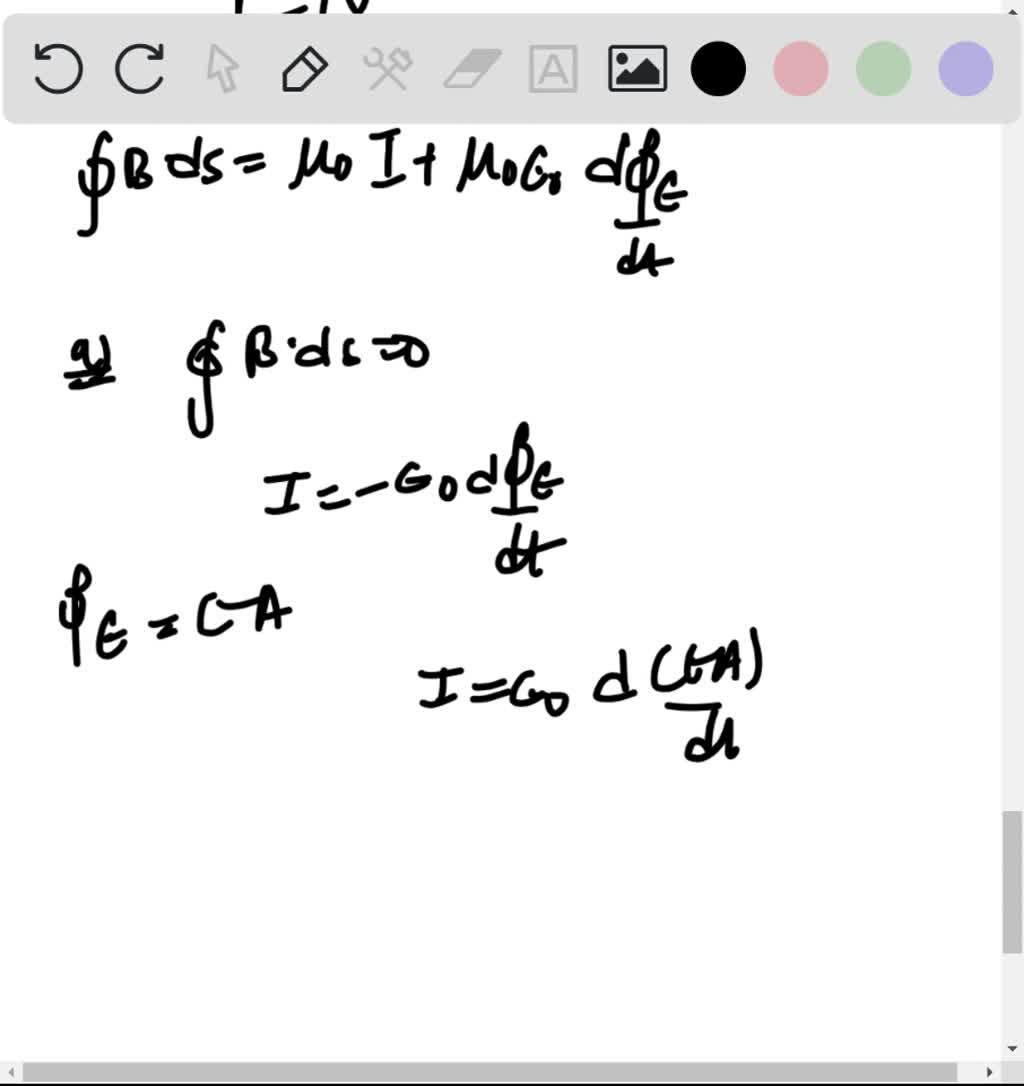 ∮B ds = μ₀ I + μ₀ε₀ dϕ_E/dt
a) ∮ B·ds=0
I = -ε₀ dϕ_E/dt
ϕ_E = EA
I = ε₀ d(EA)/dt